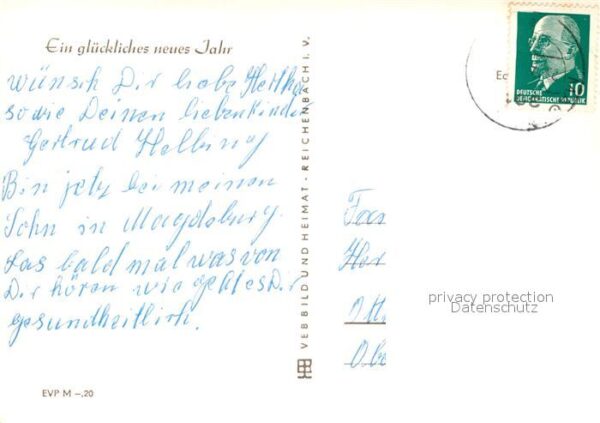 Ein glückliches neues Jahr
wünsch Dir liebe Hertha
sowie Deinen lieben Kinder
Gertrud Helbing
Bin jetz bei meinen
Sohn in Magdeburg.
Las bald mal was von
Dir hören wie geht es Dir
gesundheitlich.
EVP M –,20
VEB BILD UND HEIMAT · REICHENBACH I. V.
DEUTSCHE
DEMOKRATISCHE REPUBLIK
10
Her
Ott
Obe
privacy protection
Datenschutz